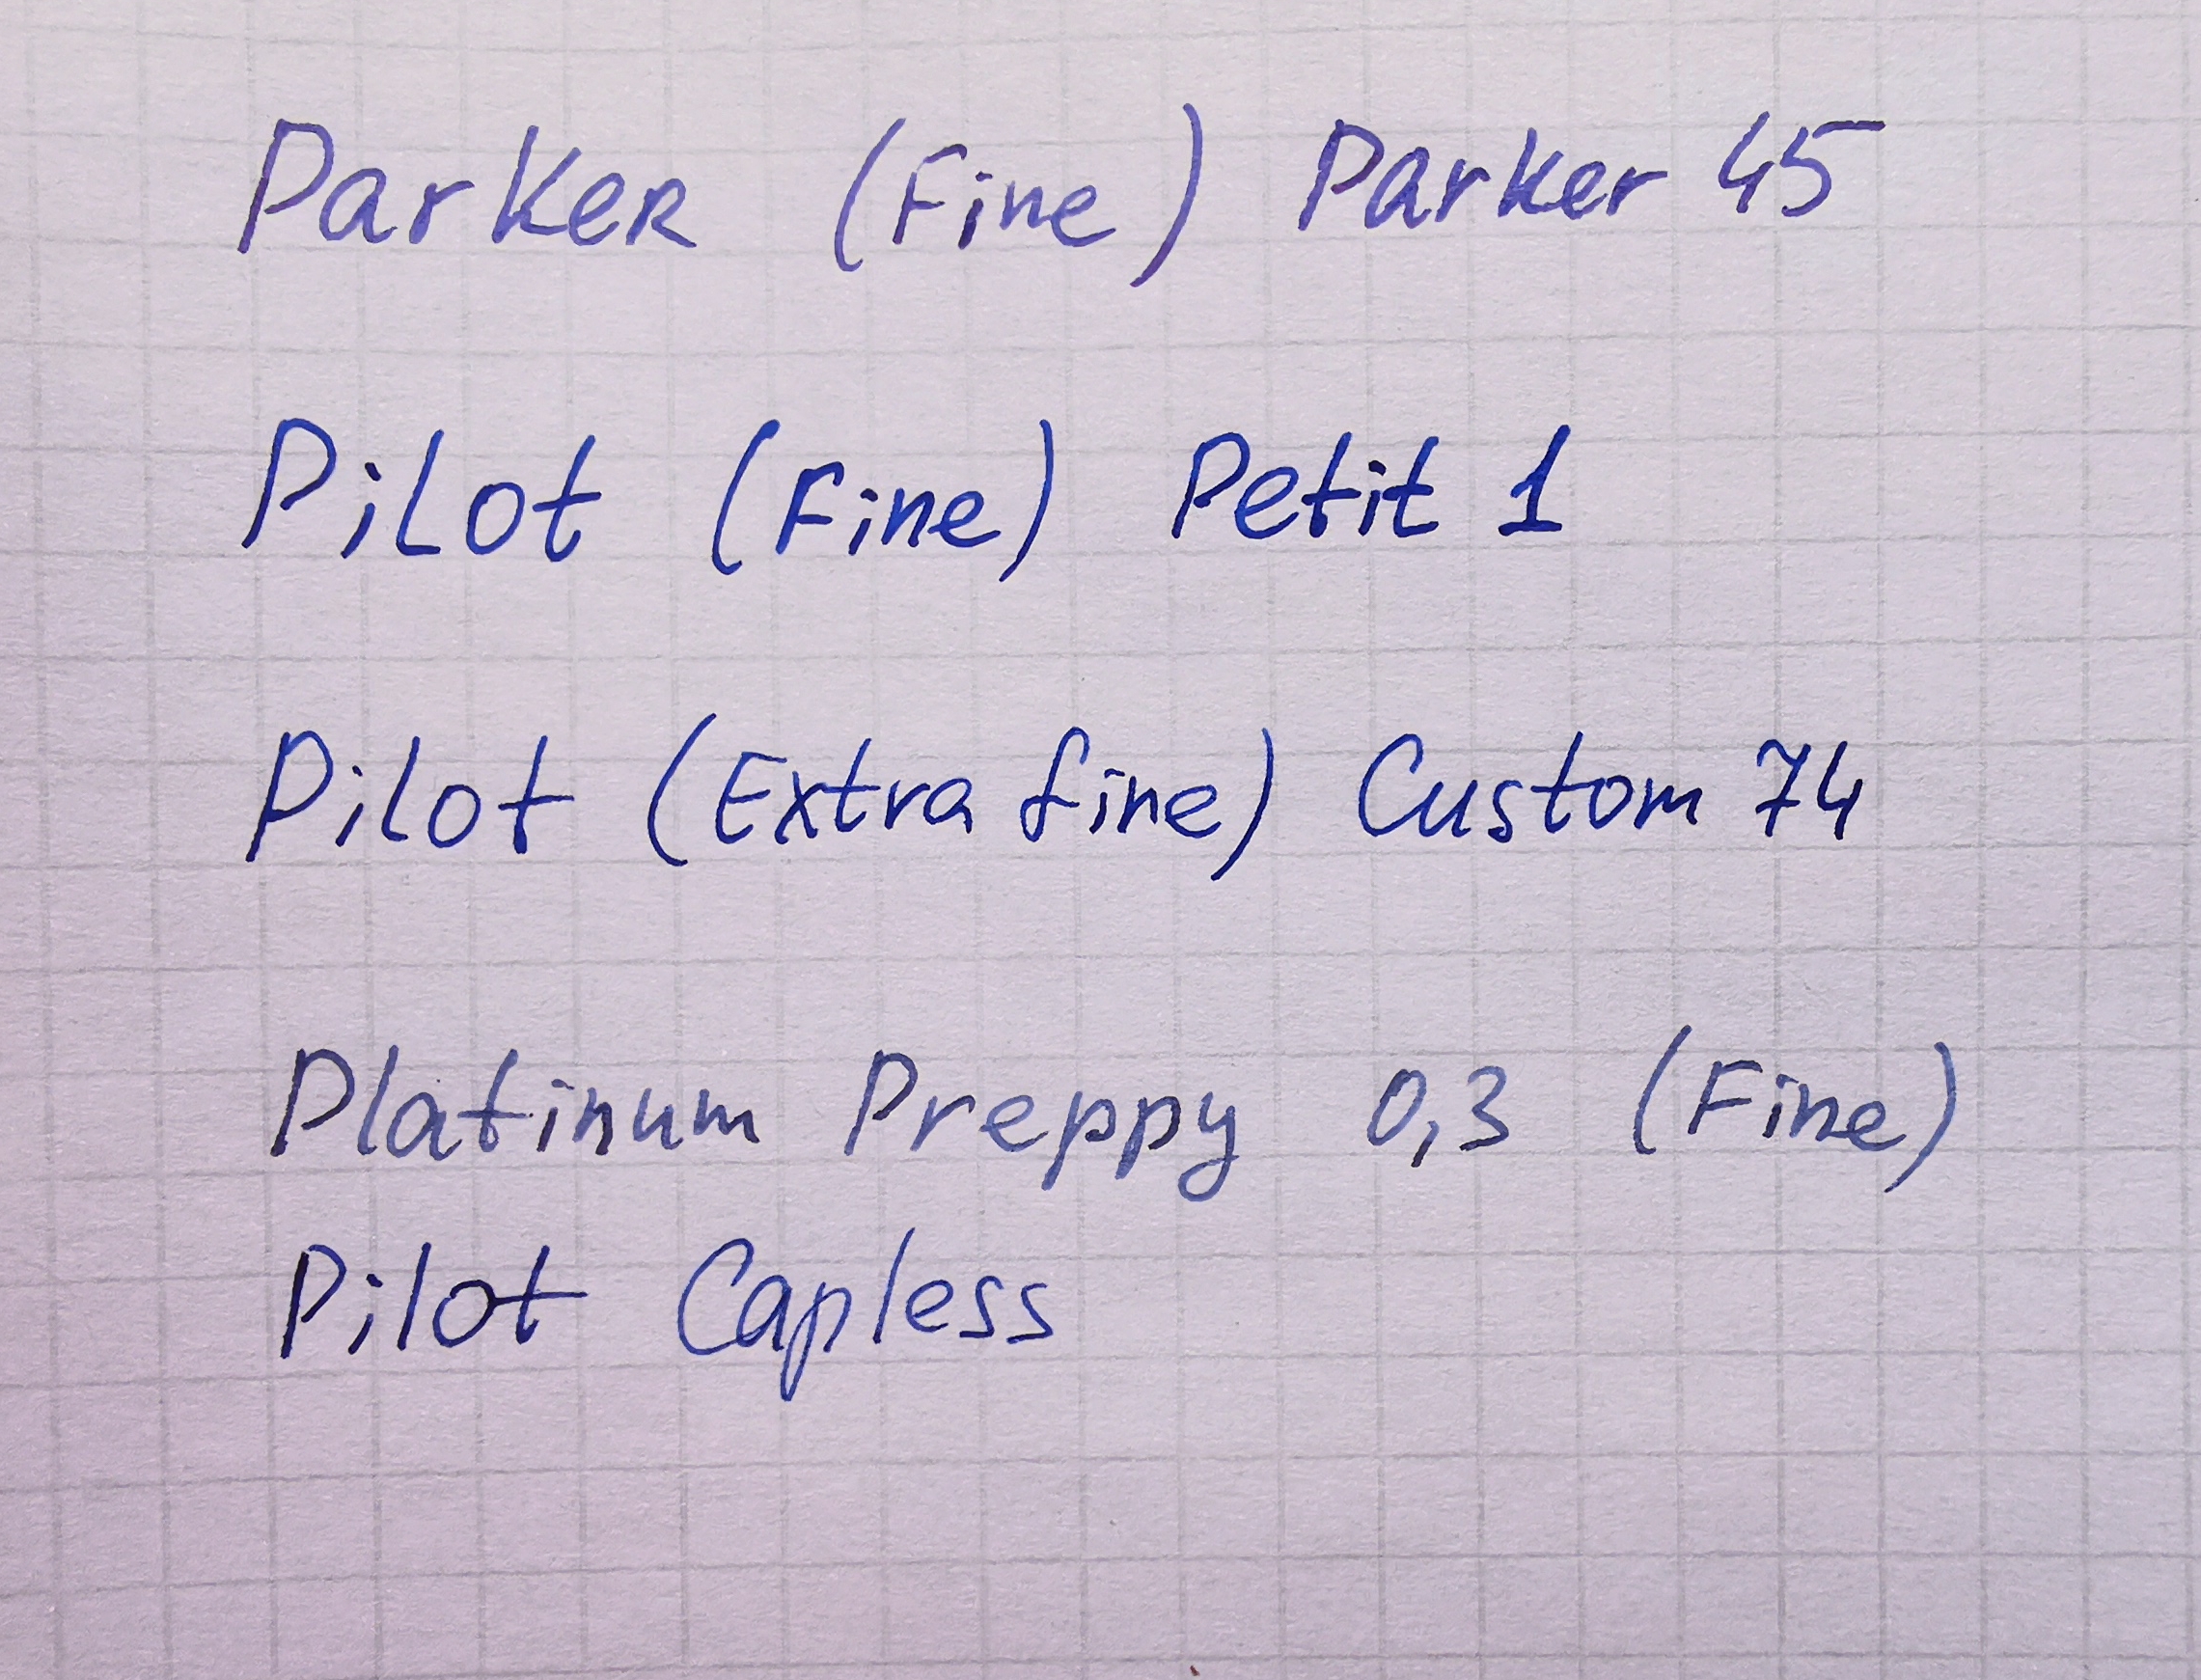 Parker (Fine) Parker 45
Pilot (Fine) Petit 1
Pilot (Extra fine) Custom 74
Platinum Preppy 0,3 (Fine)
Pilot Capless